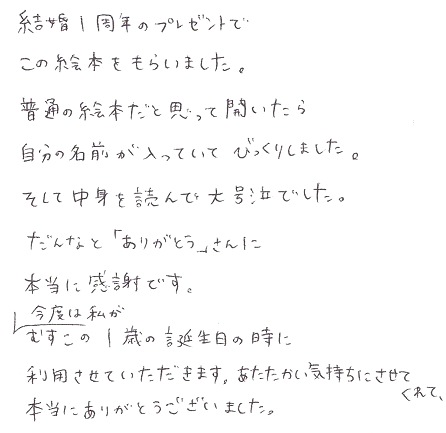 結婚1周年のプレゼントで
この絵本をもらいました。
普通の絵本だと思って開いたら
自分の名前が入っていてびっくりしました。
そして中身を読んで大号泣でした。
だんなと「ありがとう」さんに
本当に感謝です。
今度は私が
むすこの1歳の誕生日の時に
利用させていただきます。あたたかい気持ちにさせて
くれて、
本当にありがとうございました。